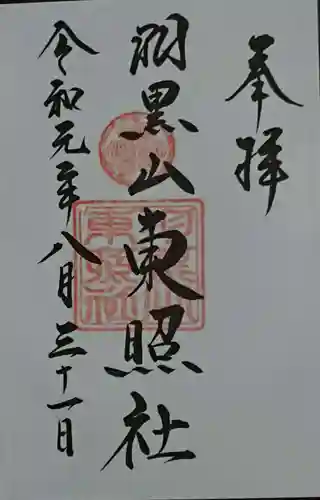 奉拝
羽黒山東照社
令和元年八月三十一日